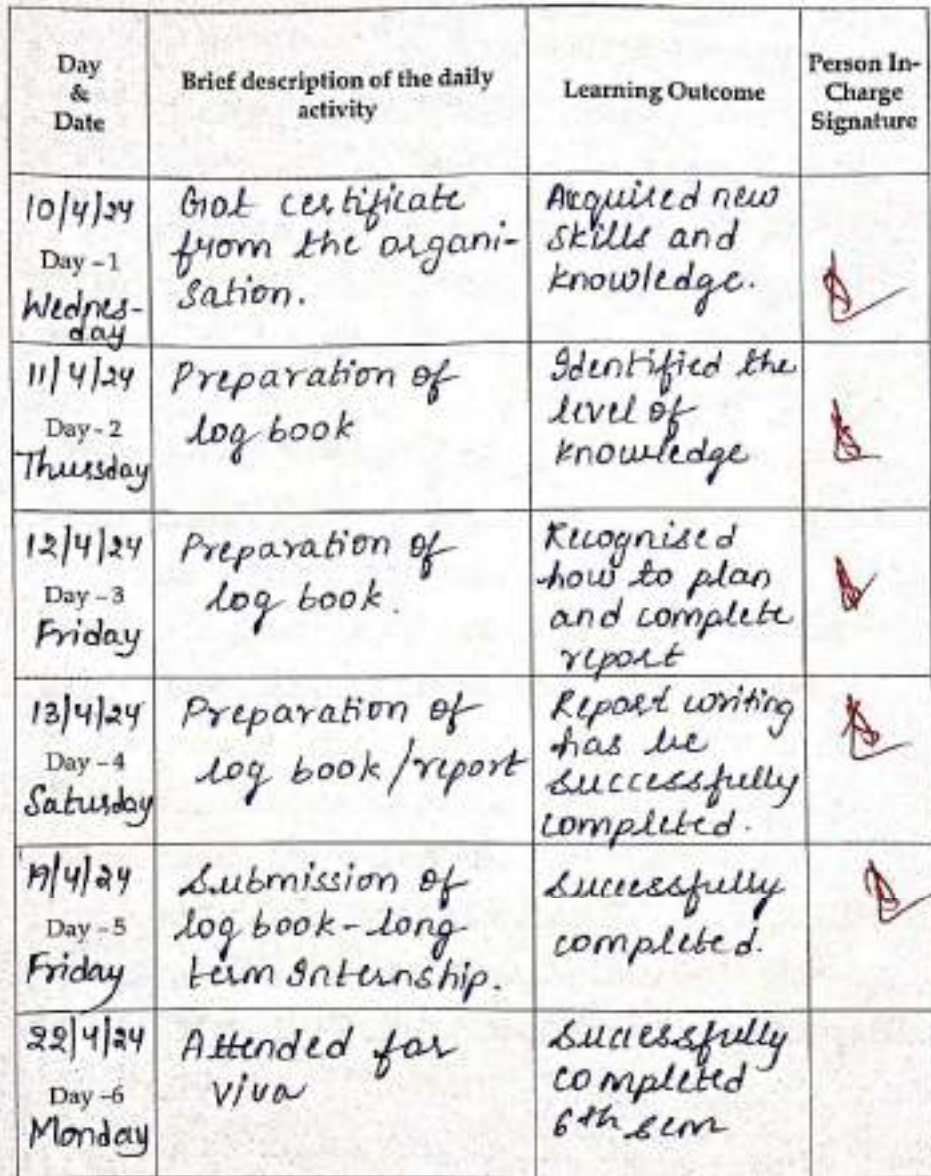 Day
&
Date
Brief description of the daily
activity
Learning Outcome
Person In-
Charge
Signature
10/4/24
Day - 1
Wednes-
day
Got certificate
from the organi-
sation.
Acquired new
skills and
knowledge.
11/4/24
Day - 2
Thursday
Preparation of
log book
Identified the
level of
knowledge
12/4/24
Day - 3
Friday
Preparation of
log book.
Recognised
how to plan
and complete
report
13/4/24
Day - 4
Saturday
Preparation of
log book/report
Report writing
has be
successfully
completed.
19/4/24
Day - 5
Friday
Submission of
log book - long
term Internship.
Successfully
completed.
22/4/24
Day -6
Monday
Attended for
viva
Successfully
completed
6th sem